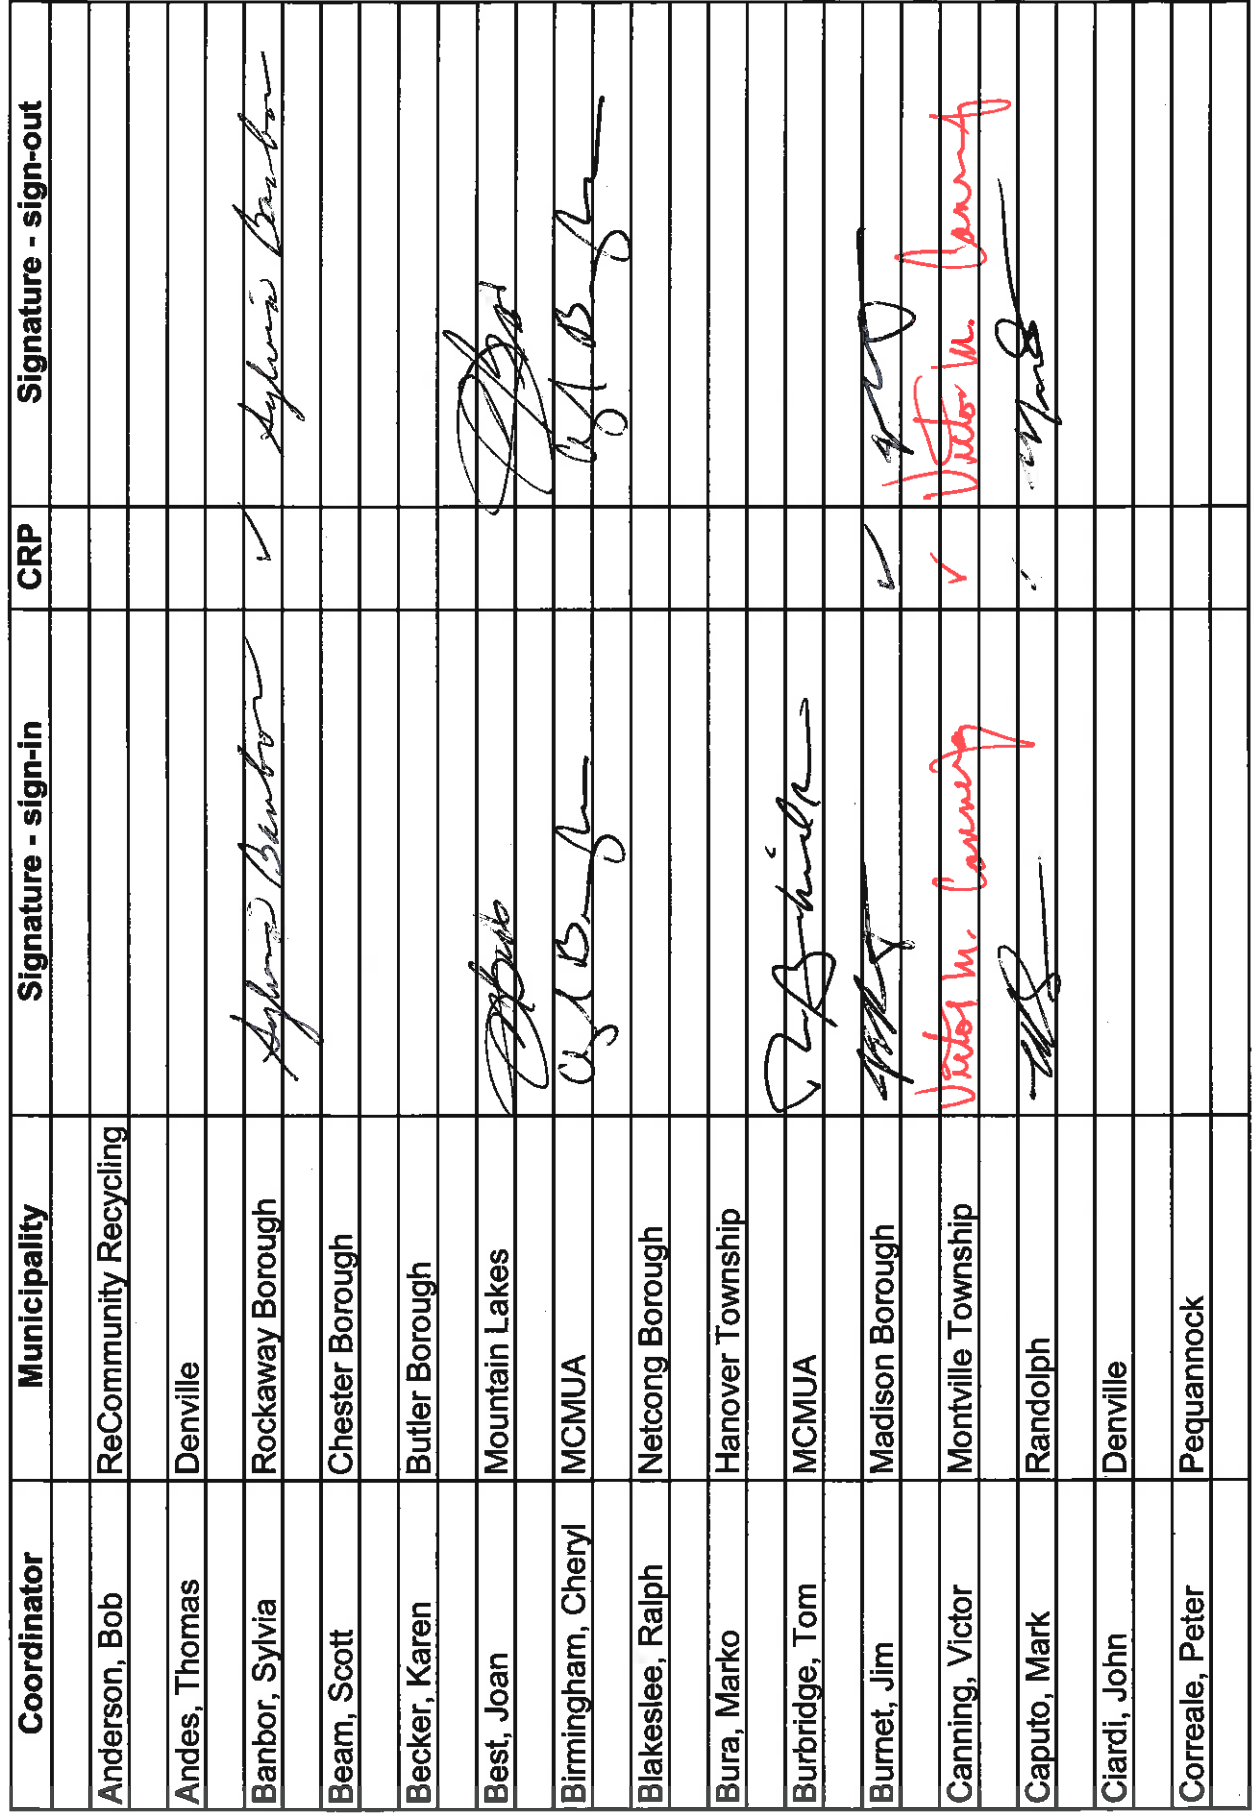 Coordinator Municipality Signature - sign-in CRP Signature - sign-out
Anderson, Bob ReCommunity Recycling
Andes, Thomas Denville
Banbor, Sylvia Rockaway Borough Sylvia Banbor ✓ Sylvia Banbor
Beam, Scott Chester Borough
Becker, Karen Butler Borough
Best, Joan Mountain Lakes
Birmingham, Cheryl MCMUA
Blakeslee, Ralph Netcong Borough
Bura, Marko Hanover Township
Burbridge, Tom MCMUA
Burnet, Jim Madison Borough ✓
Canning, Victor Montville Township Victor M. Canning ✓ Victor M. Canning
Caputo, Mark Randolph
Ciardi, John Denville
Correale, Peter Pequannock